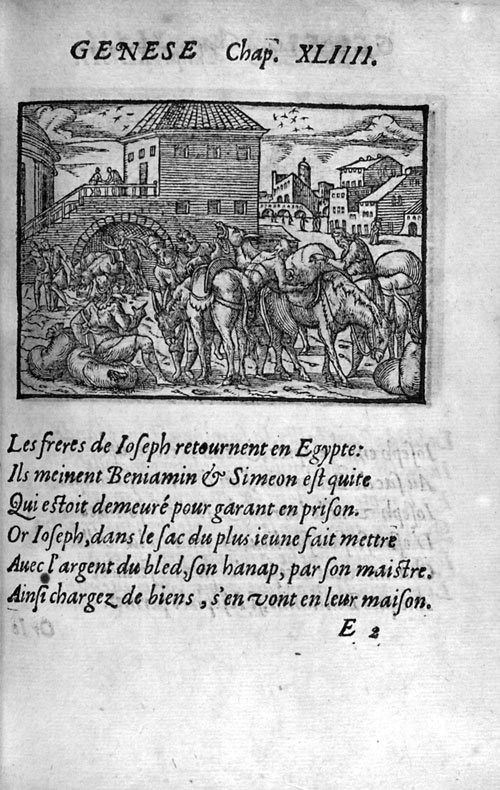 GENESE Chap. XLIIII.
Les freres de Ioseph retournent en Egypte:
Ils meinent Beniamin & Simeon est quite
Qui estoit demeuré pour garant en prison.
Or Ioseph, dans le sac du plus ieune fait mettre
Auec l'argent du bled, son hanap, par son maistre.
Ainsi chargez de biens, s'en vont en leur maison.
E 2